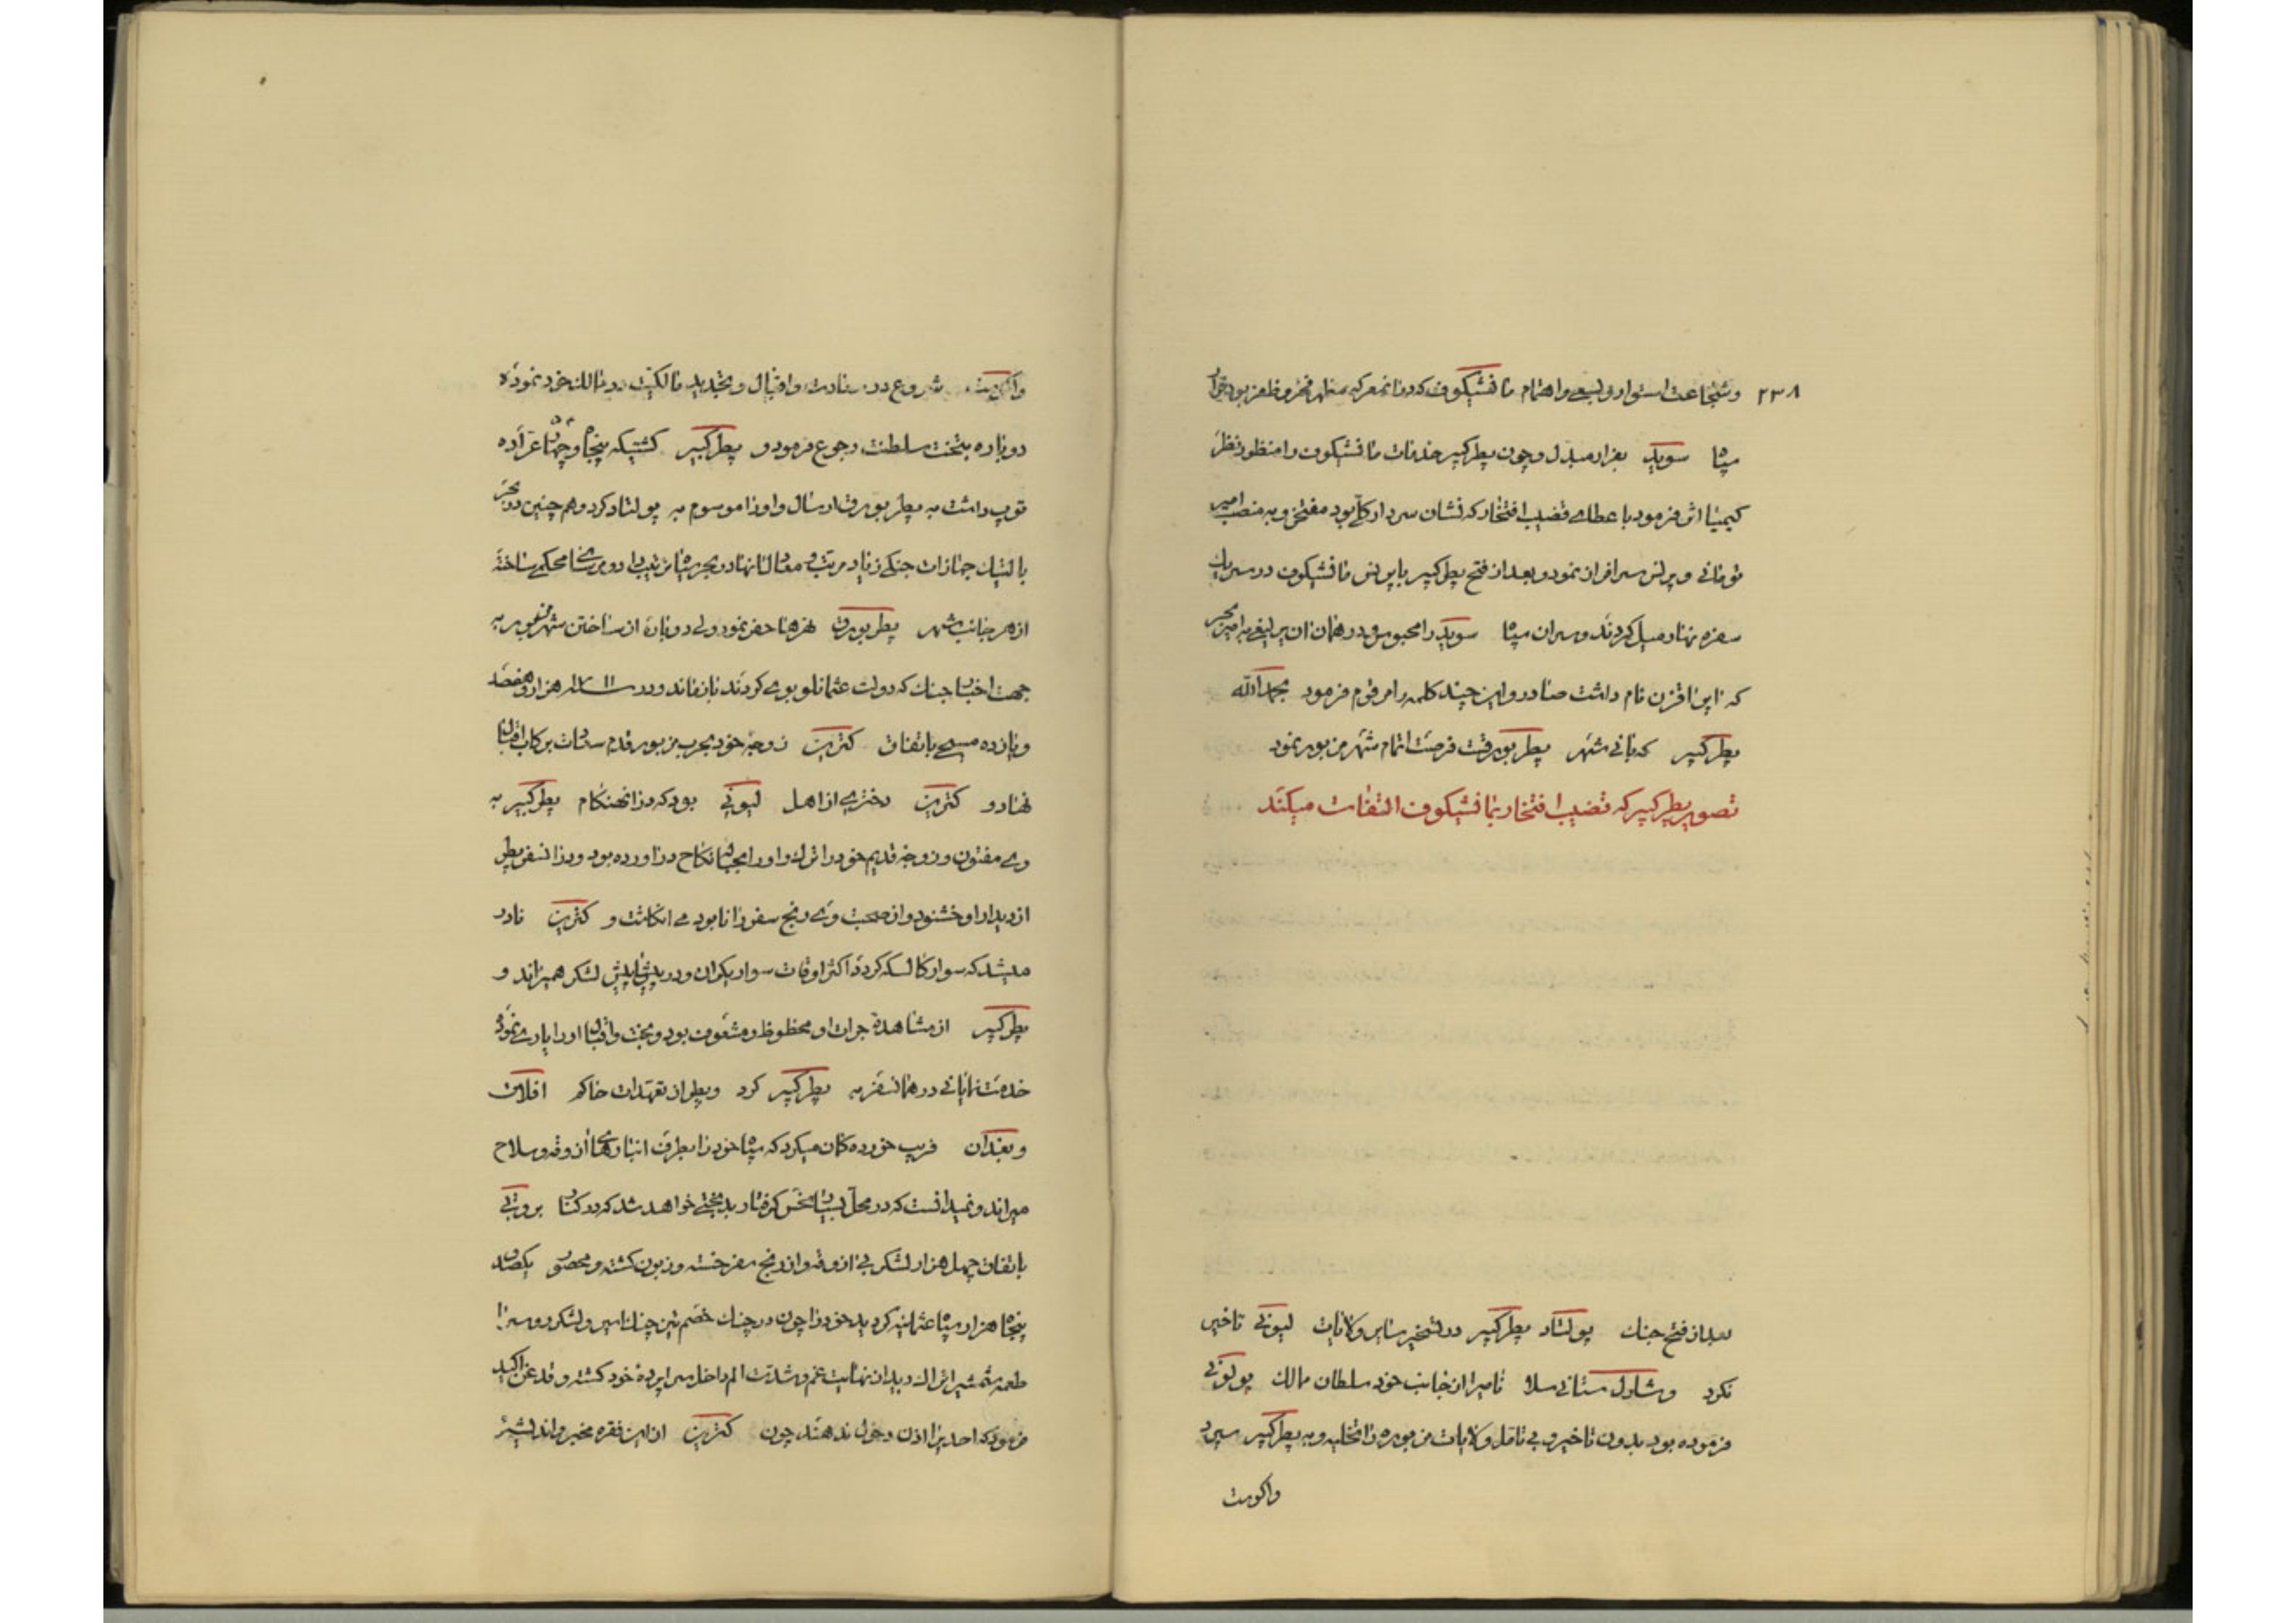 ٢٣٨ وشجاعت استوار وبسعی واهتمام مانشیکوف که در انمعرکه مظهر فخر وظفر بود
سپاه سوید بفرار مبدل وچون پطرکبیر خدمات مانشیکوف را منظور نظر
کیمیا اثر فرمود با عطای قضیب افتخار که نشان سردار کل بود مفتخر و به منصب امیر
تومانی و پرنس سرافراز نمود و بعد از فتح پطرکبیر با پرنس مانشیکوف در سر یک
سفره نهار میل کردند وسران سپاه سوید را محبوس و در همان ان یرلیغی به امیر بحر
که اپراقزن نام داشت صادر واین چند کلمه را مرقوم فرمود بحمدالله
پطرکبیر که بانی شهر پطربورقت فرصت اتمام شهر مزبور نمود
تصویر پطرکبیر که قضیب افتخار بمانشیکوف التفات میکند
بعد از فتح جنک پولتاد پطرکبیر در تسخیر سایر ولایات لیونی تاخیر
نکرد وشارل ستانی سلاد نامیرا از جانب خود سلطان ممالک پولونی
فرموده بود بدون تاخیر و بی تامل ولایات مزبوره را تخلیه و به پطرکبیر سپرد
واکوست
واکوست شروع در سعادت واقبال و تجدید مالکیت در ممالک خود نموده
دوباره بتخت سلطنت رجوع فرمود و پطرکبیر کشتیکه پنجاه وچهار عراده
توپ داشت به پطربورق ارسال واورا موسوم به پولتاد کرد وهم چنین در بحر
بالتیک جهازات جنکی زیاد مرتب و معادل انها در بحر سیاه ترتیب داد و مرسی محکمی ساخته
از هر جانب شهر پطربورق نهرها حفر نمود ولی دوباره از ساختن شهر مزبور به
جهت اختیار جنک که دولت عثمانلو بوی کردند بازماند و در سنه ۱۷۱۱ هزار وهفصد
ویازده مسیحی باتفاق کترین زوجه خود بحرب مزبور قدم سعادت برکاب اقبال
نهاد و کترین دختری از اهل لیونی بود که در انهنکام پطرکبیر به
وی مفتون وزوجه قدیم خود را ترک واورا بحباله نکاح دراورده بود ودر انسفر پطر
از دیدار او خشنود واز صحبت وی رنج سفر را نابود می انکاشت و کترین نادر
میشد که سوار کالسکه کردد اکثر اوقات سوار یکران ودر پیشاپیش لشکر همیراند و
پطرکبیر از مشاهده جرات او محظوظ و مشعوف بود وبخت واقبال اورا یاری نموده
خدمت نمایانی در همانسفر به پطرکبیر کرد وپطر از تعهدات حاکم افلاق
وبغدان فریب خورده کمان میکرد که سپاه خود را بطرف انبارهای اذوقه وسلاح
میراند ونمیدانست که در محل بسیار نحس کرفتار بدبختی خواهد شد که در کنار بروتی
باتفاق چهل هزار لشکر بی اذوقه واز رنج سفر خسته وزبون کشته ومحصور یکصد
پنجاه هزار سپاه عثمانیه کردید خود را چون در چنک خصم تیز چنک اسیر ولشکر روسرا
طعمه شمشیر اتراک دید از نهایت غم وشدت الم داخل سراپرده خود کشته وقدغن اکید
فرمود که احدیرا اذن دخول ندهند چون کترین از این فقره مخبر واندیشه